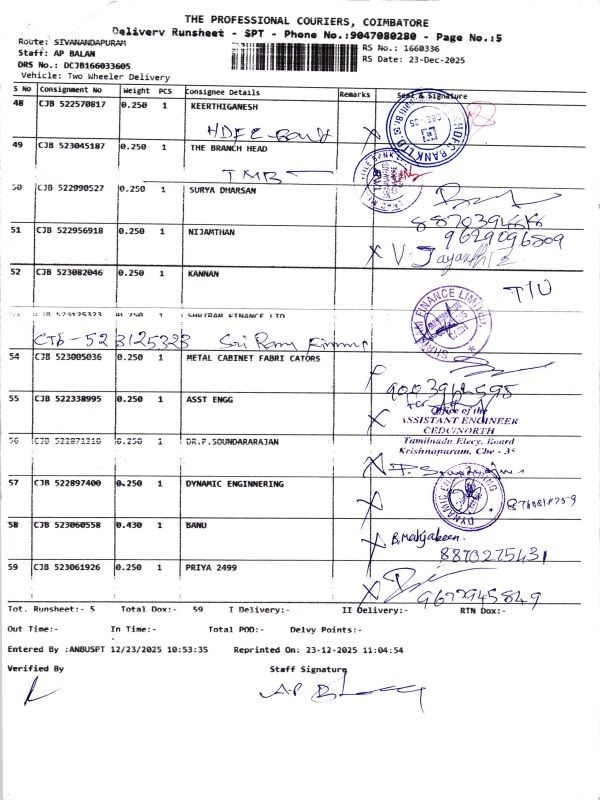 THE PROFESSIONAL COURIERS, COIMBATORE
Delivery Runsheet - SPT - Phone No.:9047080280 - Page No.:5
Route: SIVANANDAPURAM
Staff: AP BALAN
DRS No.: DCJB166033605
Vehicle: Two Wheeler Delivery
RS No.: 1660336
RS Date: 23-Dec-2025
S No Consignment No Weight PCS Consignee Details Remarks Seal & Signature
48 CJB 522570817 0.250 1 KEERTHIGANESH
HDFC Bank
HDFC BANK LTD.
49 CJB 523045187 0.250 1 THE BRANCH HEAD
TMB
50 CJB 522990527 0.250 1 SURYA DHARSAN
51 CJB 522956918 0.250 1 NIJAMTHAN
9629096509
V. Jayanthi
52 CJB 523082046 0.250 1 KANNAN
T/U
53 CJB 523125323 0.250 1 SHRIRAM FINANCE LTD
CJB-523125323 Sri Ram Finance
54 CJB 523005036 0.250 1 METAL CABINET FABRI CATORS
9003962595
55 CJB 522338995 0.250 1 ASST ENGG
for
Office of the
ASSISTANT ENGINEER
CEDC/NORTH
Tamilnadu Elecy. Board
Krishnapuram, Cbe - 35
56 CJB 522871210 0.250 1 DR.P.SOUNDARARAJAN
57 CJB 522897400 0.250 1 DYNAMIC ENGINNERING
DYNAMIC ENGINEERING
58 CJB 523060558 0.430 1 BANU
8870275431
59 CJB 523061926 0.250 1 PRIYA 2499
9672945849
Tot. Runsheet:- 5 Total Dox:- 59 I Delivery:- II Delivery:- RTN Dox:-
Out Time:- In Time:- Total POD:- Delvy Points:-
Entered By :ANBUSPT 12/23/2025 10:53:35 Reprinted On: 23-12-2025 11:04:54
Verified By Staff Signature
A.P